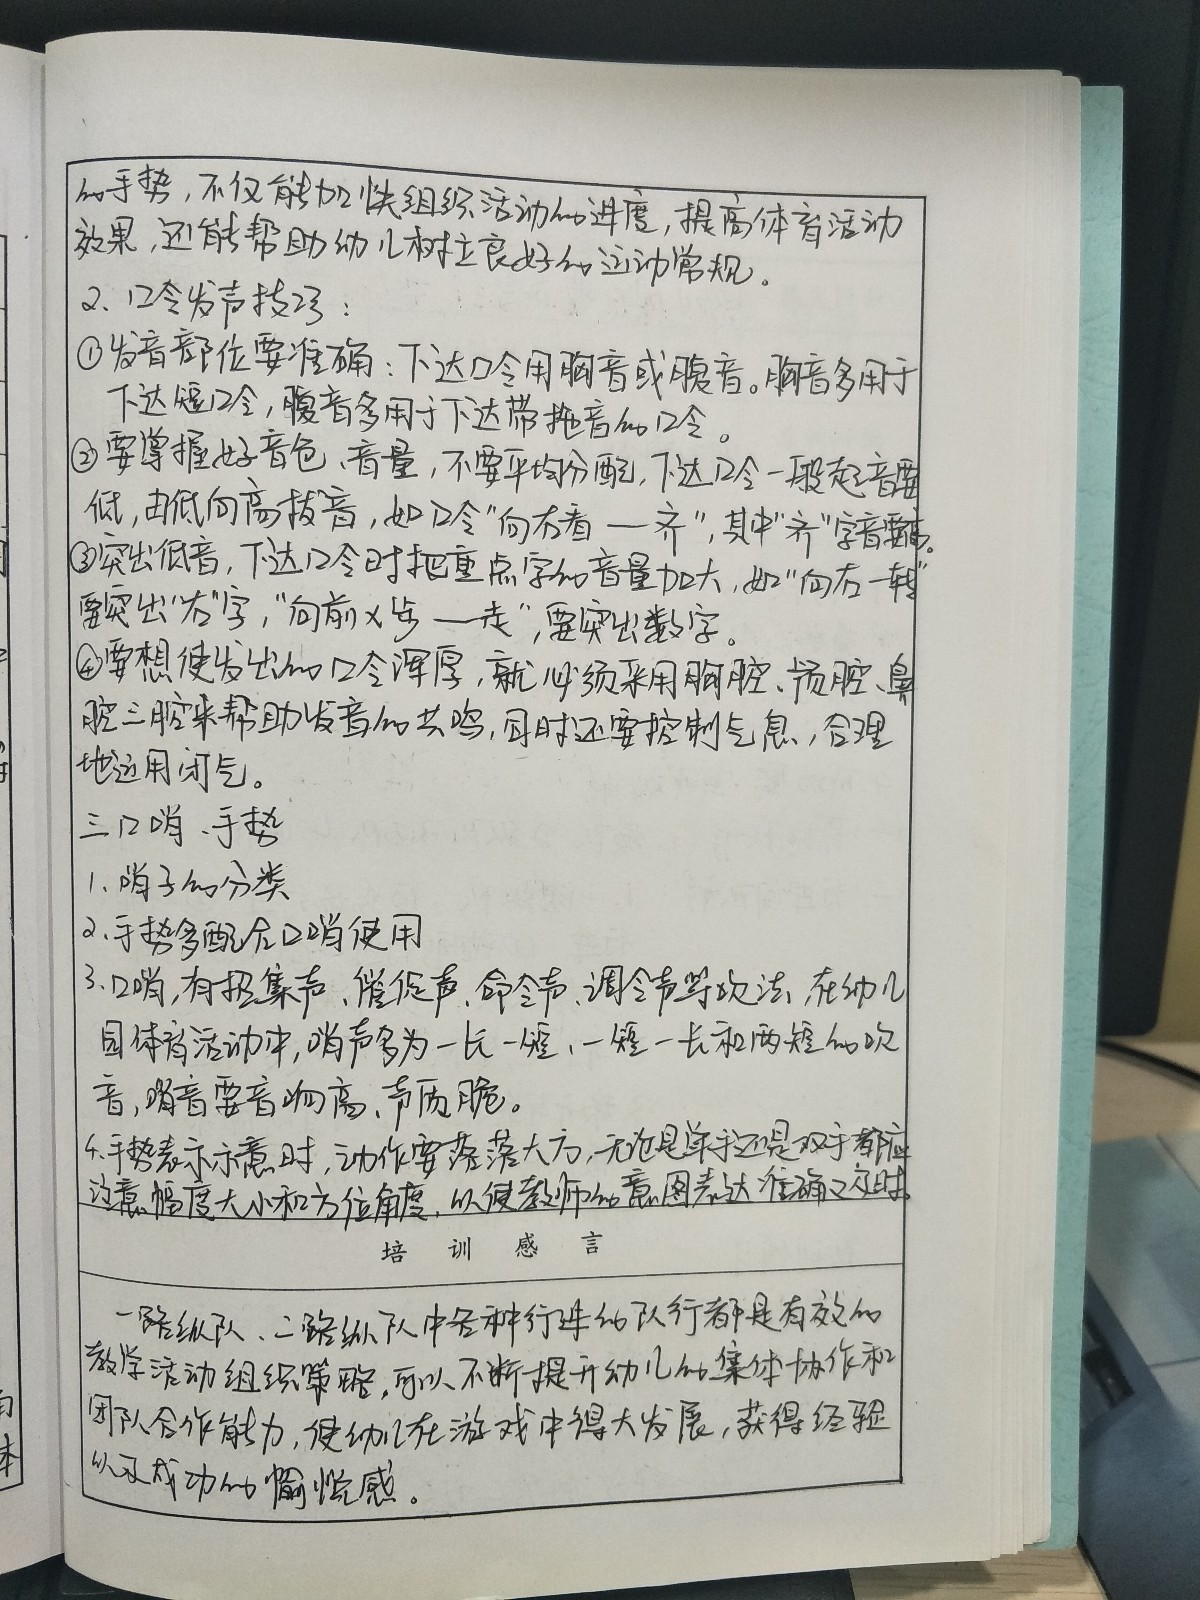 的手势，不仅能加快组织活动的进度，提高体育活动
效果，还能帮助幼儿树立良好的运动常规。
2、口令发声技巧：
①发音部位要准确：下达口令用胸音或腹音。胸音多用于
下达短口令，腹音多用于下达带拖音的口令。
②要掌握好音色、音量，不要平均分配，下达口令一般起音要
低，由低向高拔音，如口令“向右看——齐”，其中“齐”字音要高。
③突出低音，下达口令时把重点字的音量加大，如“向右—转”
要突出“右”字，“向前X步——走”，要突出数字。
④要想使发出的口令浑厚，就必须采用胸腔、颅腔、鼻
腔三腔来帮助发音的共鸣，同时还要控制气息，合理
地运用闭气。
三口哨、手势
1、哨子的分类
2、手势多配合口哨使用
3、口哨，有招集声、催促声、命令声、调令声等吹法，在幼儿
园体育活动中，哨声多为一长一短、一短一长和两短的吹
音，哨音要音响高、声质脆。
4、手势表示示意时，动作要落落大方，无论是单手还是双手都应
注意幅度大小和方位角度，以使教师的意图表达准确又及时。
培训感言
一路纵队、二路纵队中各种行进的队行都是有效的
教学活动组织策略，可以不断提升幼儿的集体协作和
团队合作能力，使幼儿在游戏中得大发展，获得经验
以及成功的愉悦感。